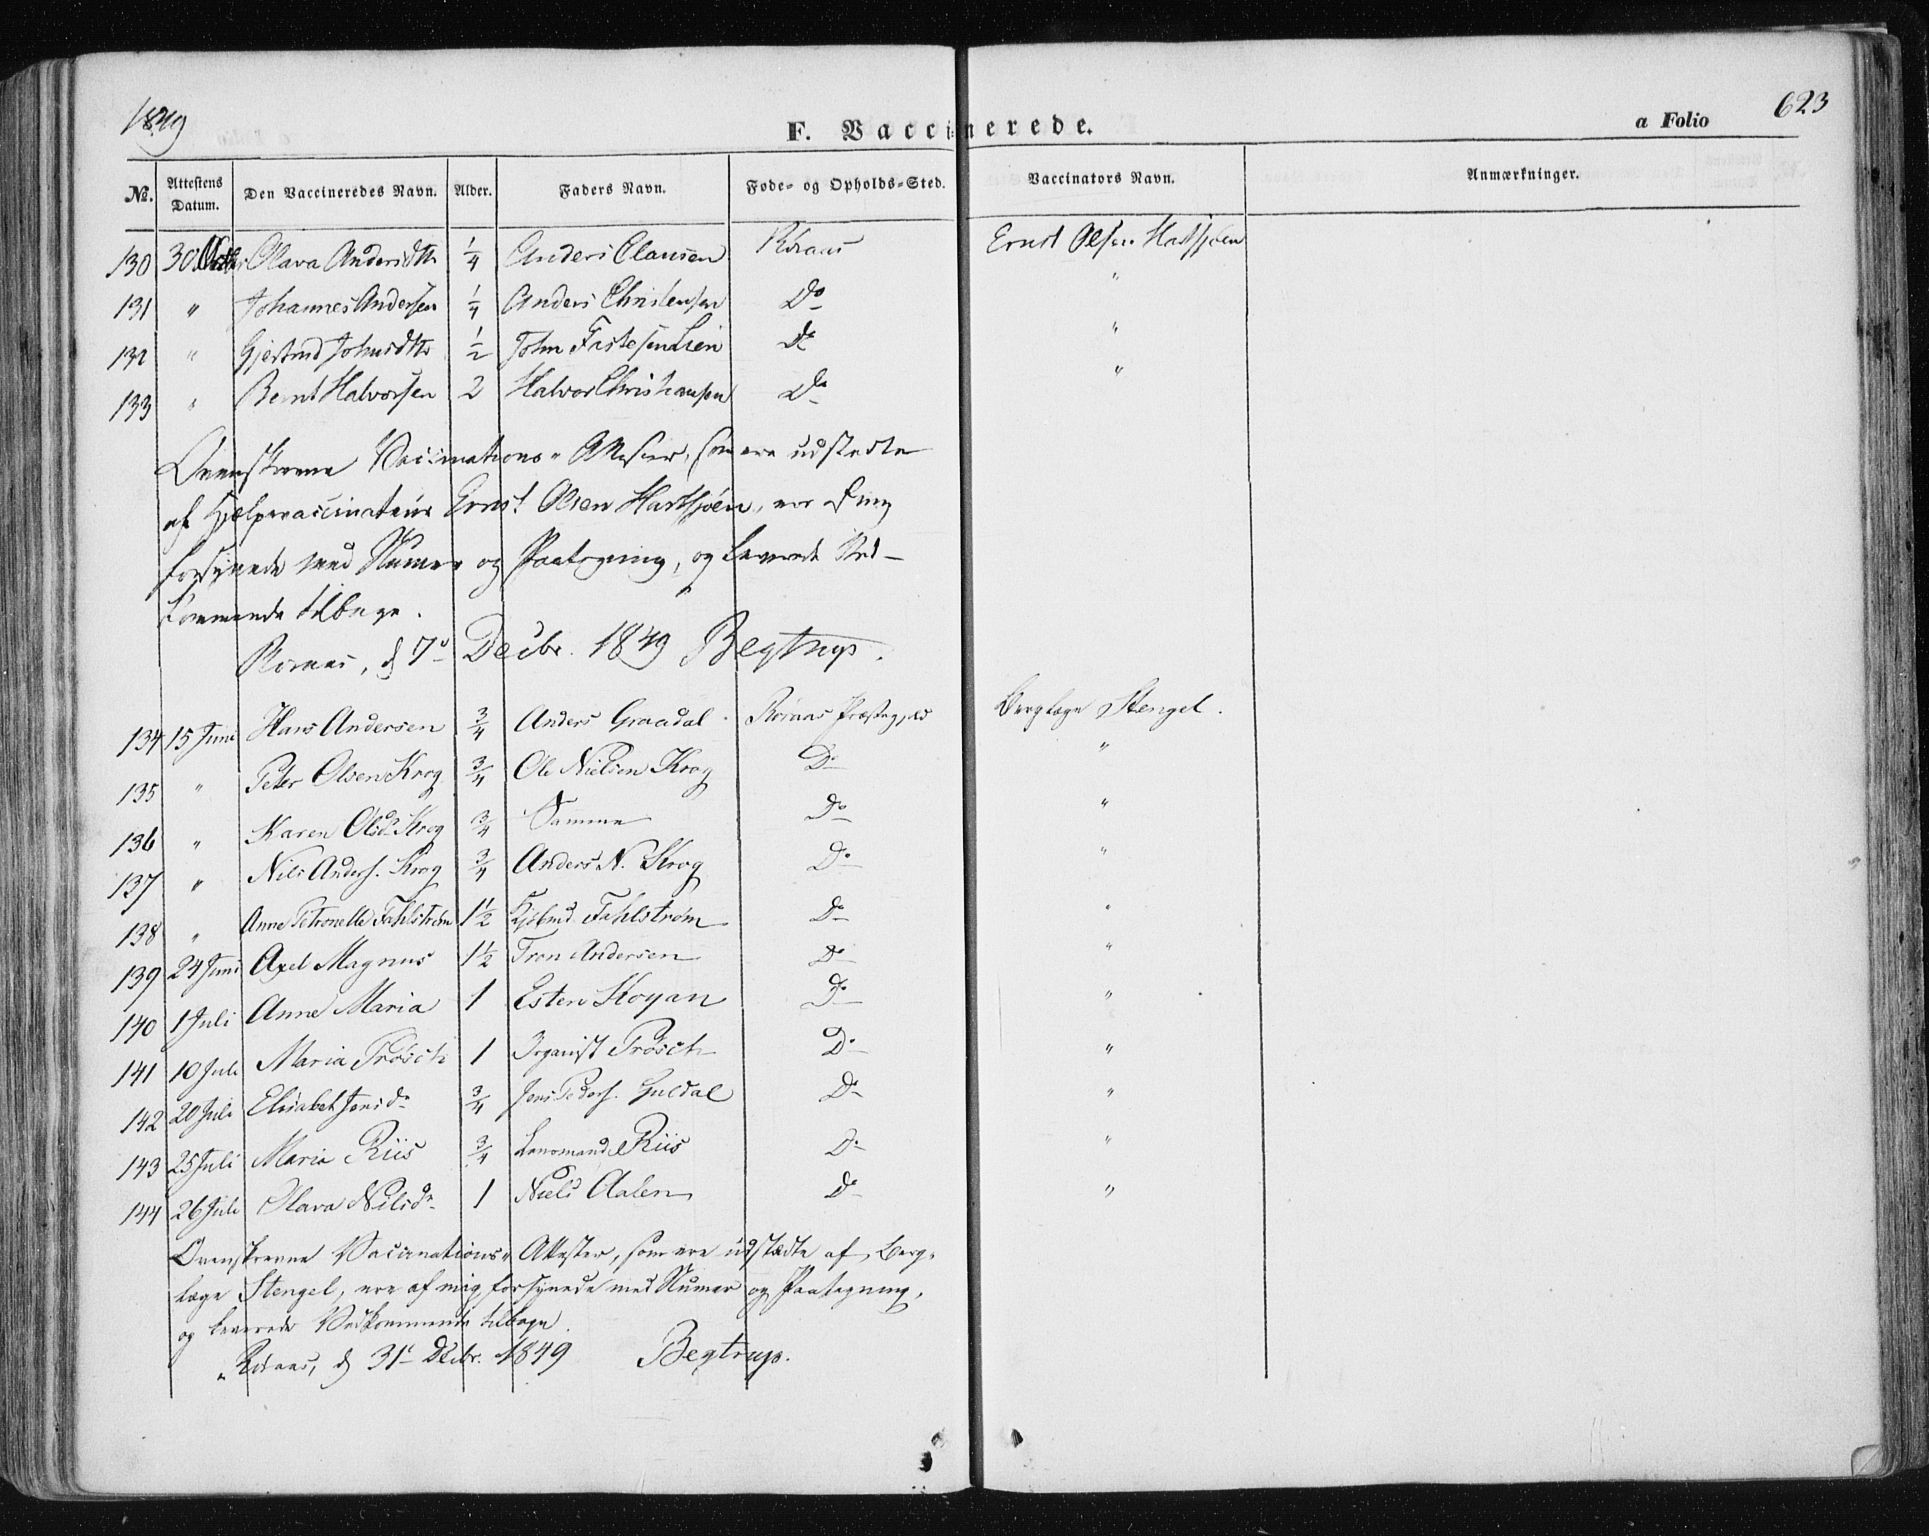 1849
F. Vaccinerede.
a Folio 623
No. Attestens Datum. Den Vaccineredes Navn. Alder. Faders Navn. Føde- og Opholds-Sted. Vaccinators Navn. Anmærkninger.
130 30 Olava Andersdtr 1/4 Anders Clausen Röraas Ernst Olsen Hartsjøen
131 " Johannes Andersen 1/4 Anders Christensen Do "
132 " Gjertrud Johnsdtr 1/2 John Fastesen Lien Do "
133 " Bernt Halvorsen 2 Halvor Christiansen Do "
Ovenskrevne Vaccinations-Attester, som ere udstedte
af Hjelpevaccinateur Ernst Olsen Hartsjøen, ere af mig
forsynede med Numer og Paategning, og leverede Ved-
kommende tilbage.
Röraas, d 7de Decbr. 1849 Begtrup.
134 15 Juni Hans Andersen 3/4 Anders Graadal Röraas Præstegjeld Berglæge Stengel.
135 " Peter Olsen Krog 3/4 Ole Nielsen Krog Do "
136 " Karen Olsdr Krog 3/4 Samme Do "
137 " Nils Anders. Krog 3/4 Anders N. Krog Do "
138 " Anne Petronelle Fahlstrøm 1 1/2 Fahlstrøm Do "
139 24 Juni Axel Magnus 1 1/2 Tron Andersen Do "
140 1 Juli Anne Maria 1 Esten Kojan Do "
141 10 Juli Maria Trösch 1 Organist Trösch Do "
142 20 Juli Elisabet Jensdr 3/4 Jens Peders. Guldal Do "
143 25 Juli Maria Riis 3/4 Lensmand Riis Do "
144 26 Juli Olava Nilsdr 1 Niels Aalen Do "
Ovenskrevne Vacinations-Attester, som ere udstædte af Berg-
læge Stengel, ere af mig forsynede med Numer og Paategning,
og leverede Vedkommende tilbage.
Röraas, d 31te Decbr. 1849 Begtrup.